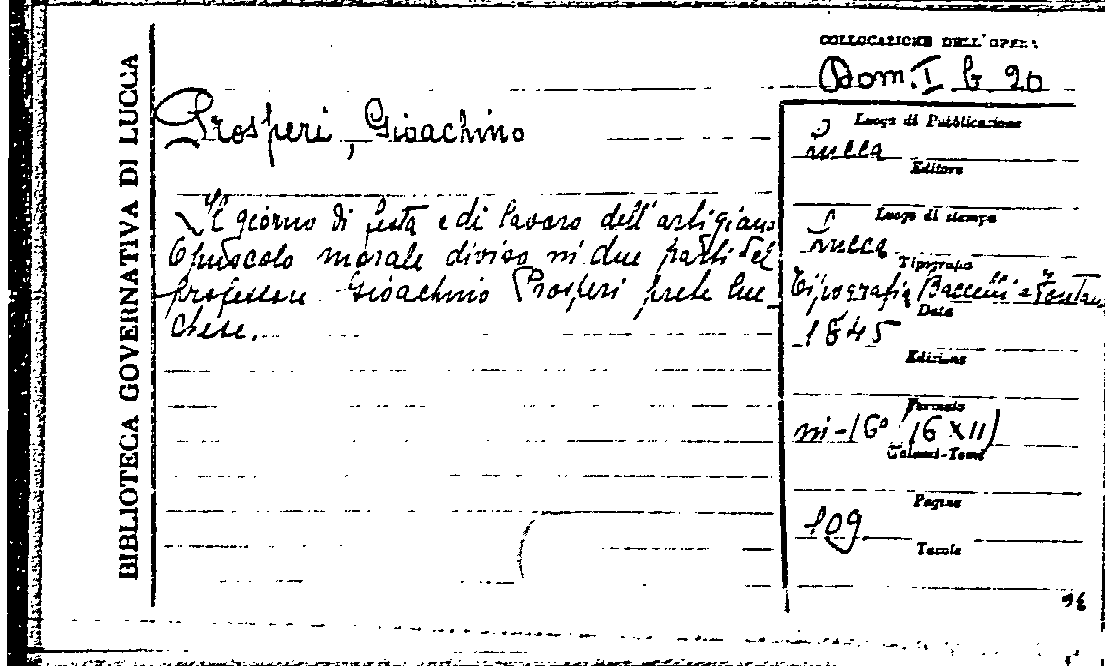 BIBLIOTECA GOVERNATIVA DI LUCCA
COLLOCAZIONE DELL'OPERA
Dom. I b 20
Prosperi, Gioachino
Il giorno di festa e di lavoro dell'artigiano
Opuscolo morale diviso in due parti del
professore Gioachino Prosperi prete luc-
chese.
Luogo di Pubblicazione
Lucca
Editore
Luogo di stampa
Lucca
Tipografo
Tipografia Baccelli e Fontan
Data
1845
Edizione
Formato
in-16° (16 X 11)
Volumi-Tomi
Pagine
109
Tavole